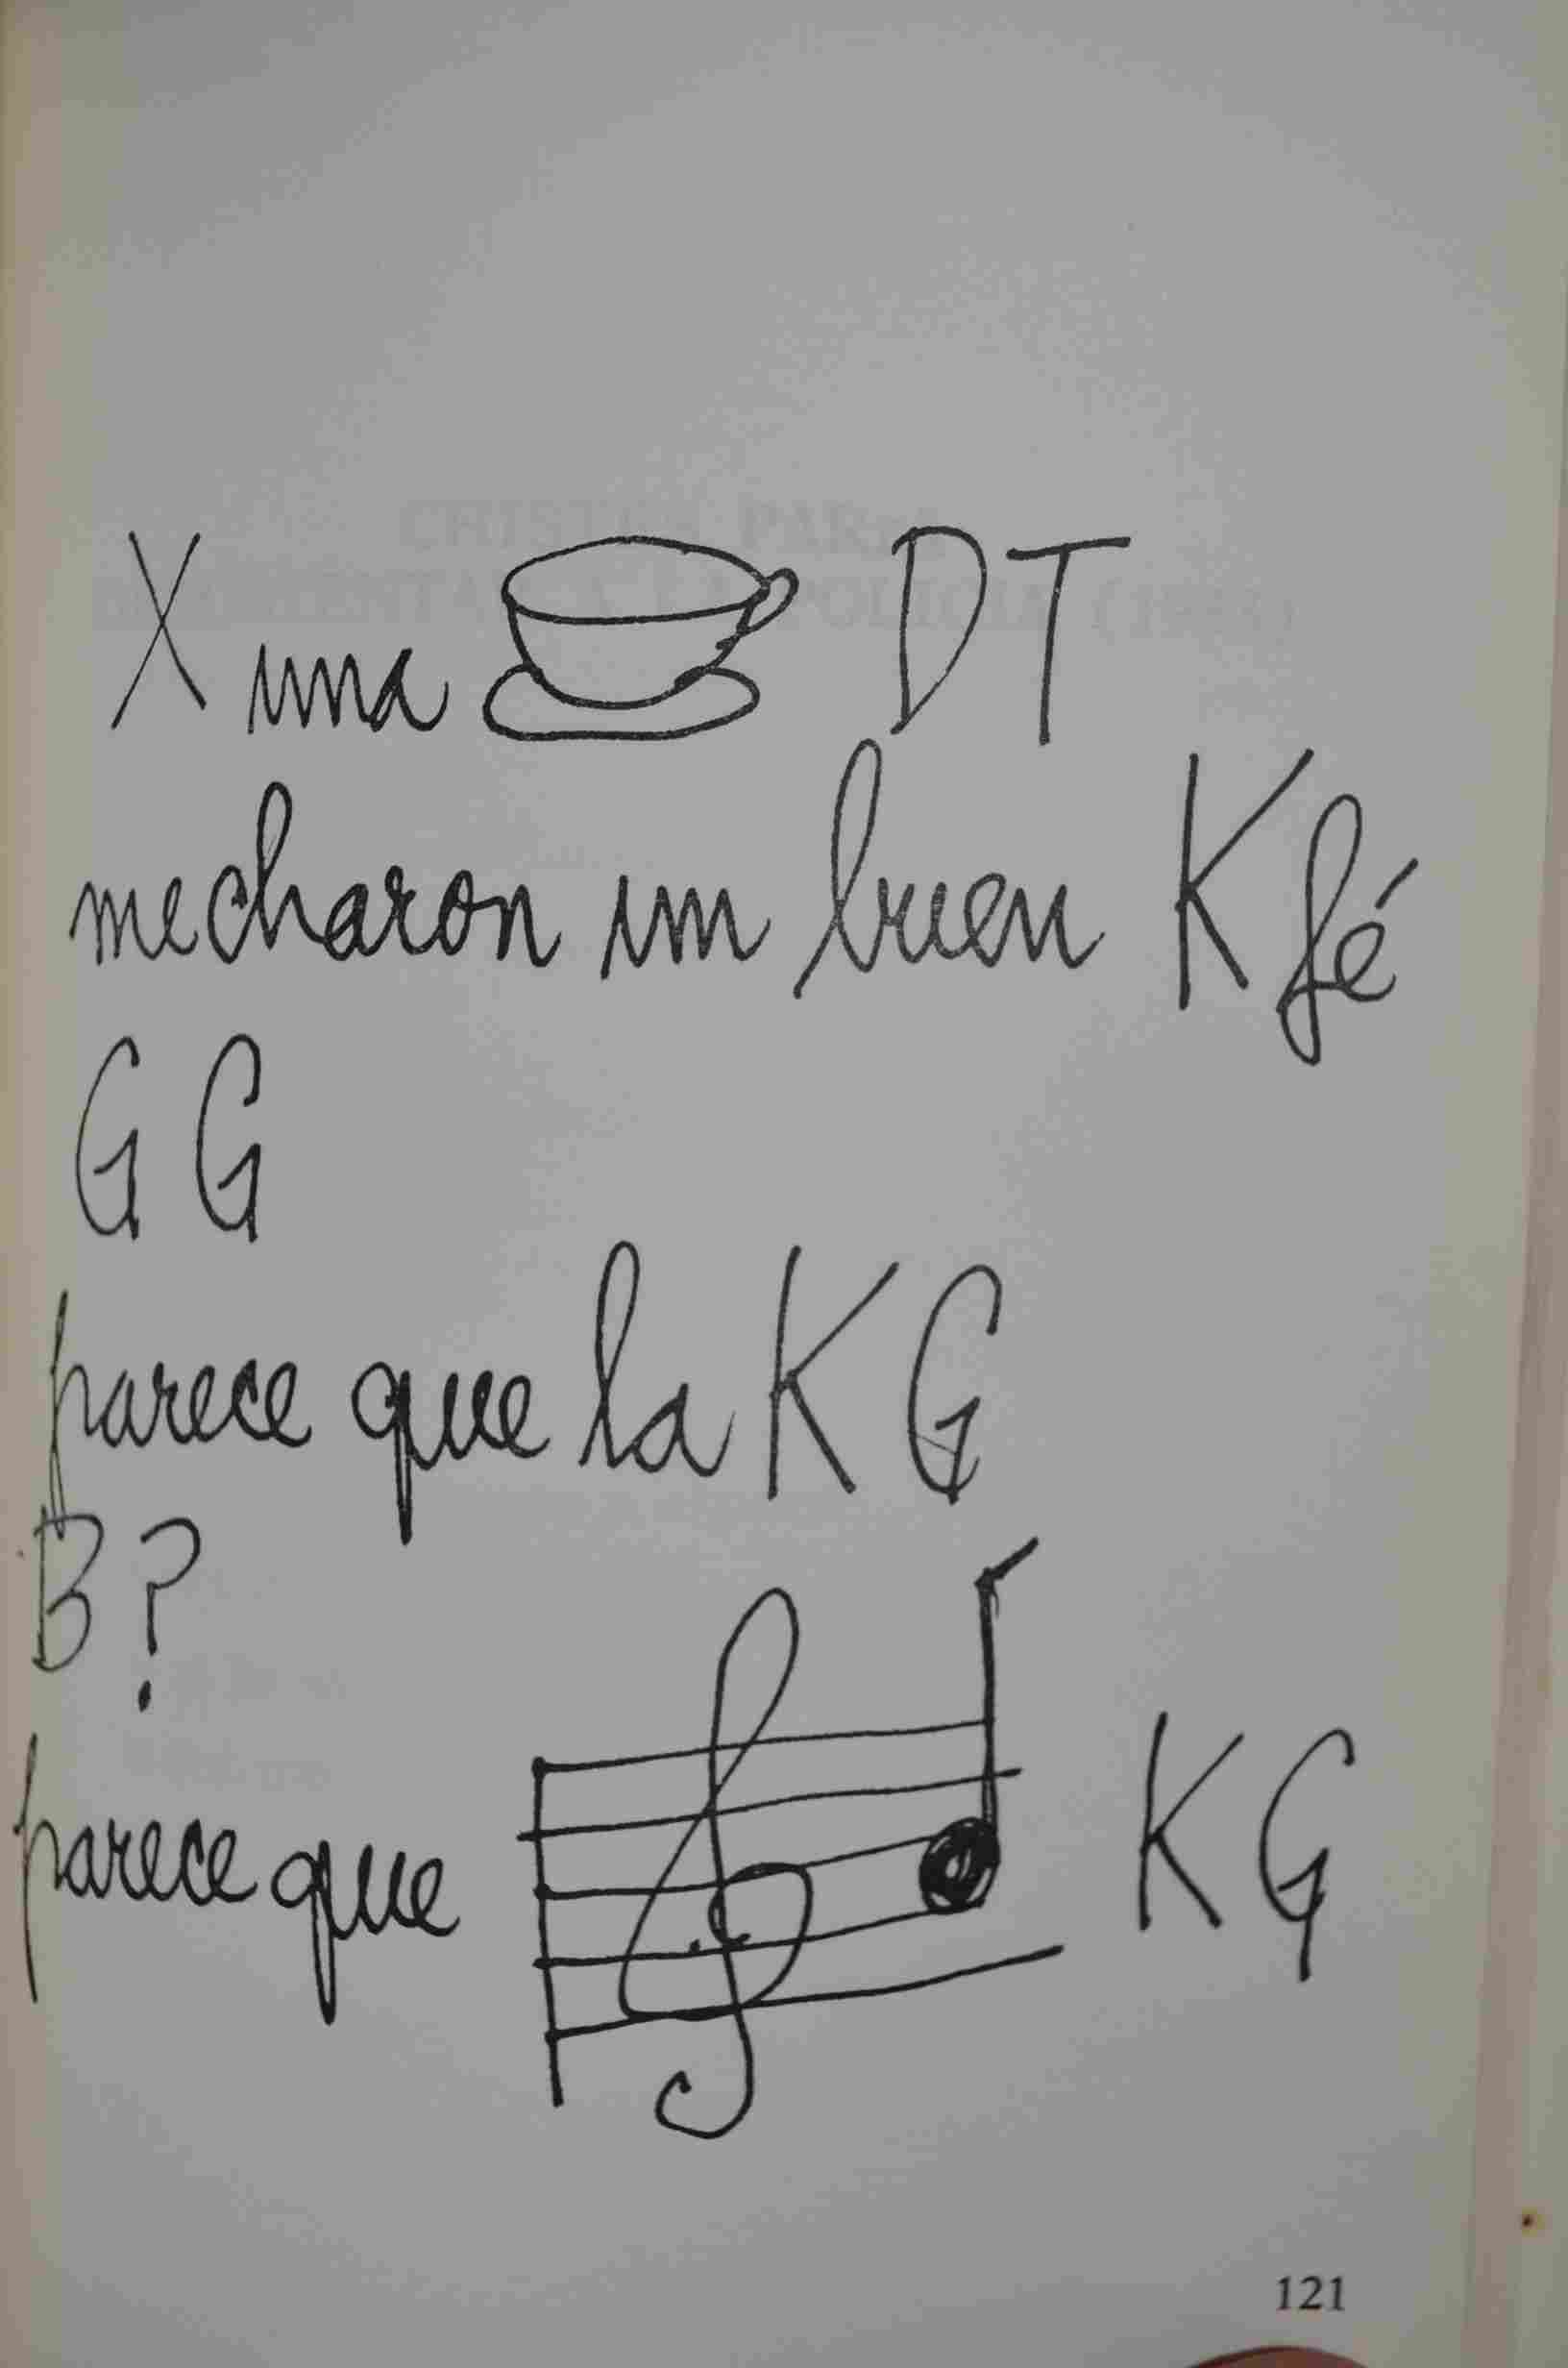 X una DT
mecharon un buen Kfé
GG
parece que la KG
B?
parece que KG
121